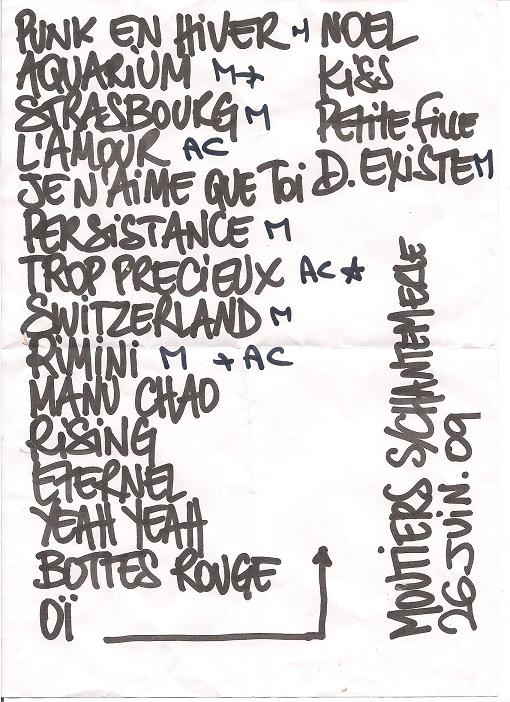 PUNK EN HIVER M
AQUARIUM M+
STRASBOURG M
L'AMOUR AC
JE N'AIME QUE TOI
PERSISTANCE M
TROP PRECIEUX AC ★
SWITZERLAND M
RIMINI M + AC
MANU CHAO
RISING
ETERNEL
YEAH YEAH
BOTTES ROUGE
OÏ
NOEL
KISS
PETITE FILLE
D. EXISTE M
MOUTIERS S/CHANTEMERLE
26 JUIN. 09